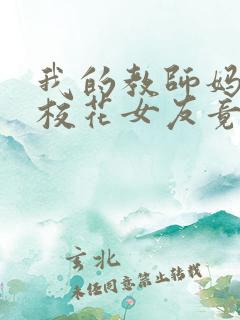 我的教師妈
校花女友竟
玄北
未经同意禁止转载